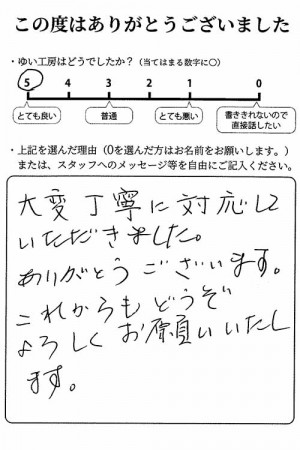 この度はありがとうございました
・ゆい工房はどうでしたか？（当てはまる数字に〇）
5 4 3 2 1 0
とても良い 普通 とても悪い 書ききれないので直接話したい
・上記を選んだ理由（0を選んだ方はお名前をお願いします。）
または、スタッフへのメッセージ等を自由にご記入ください。
大変丁寧に対応して
いただきました。
ありがとうございます。
これからもどうぞ
よろしくお願いいたし
ます。